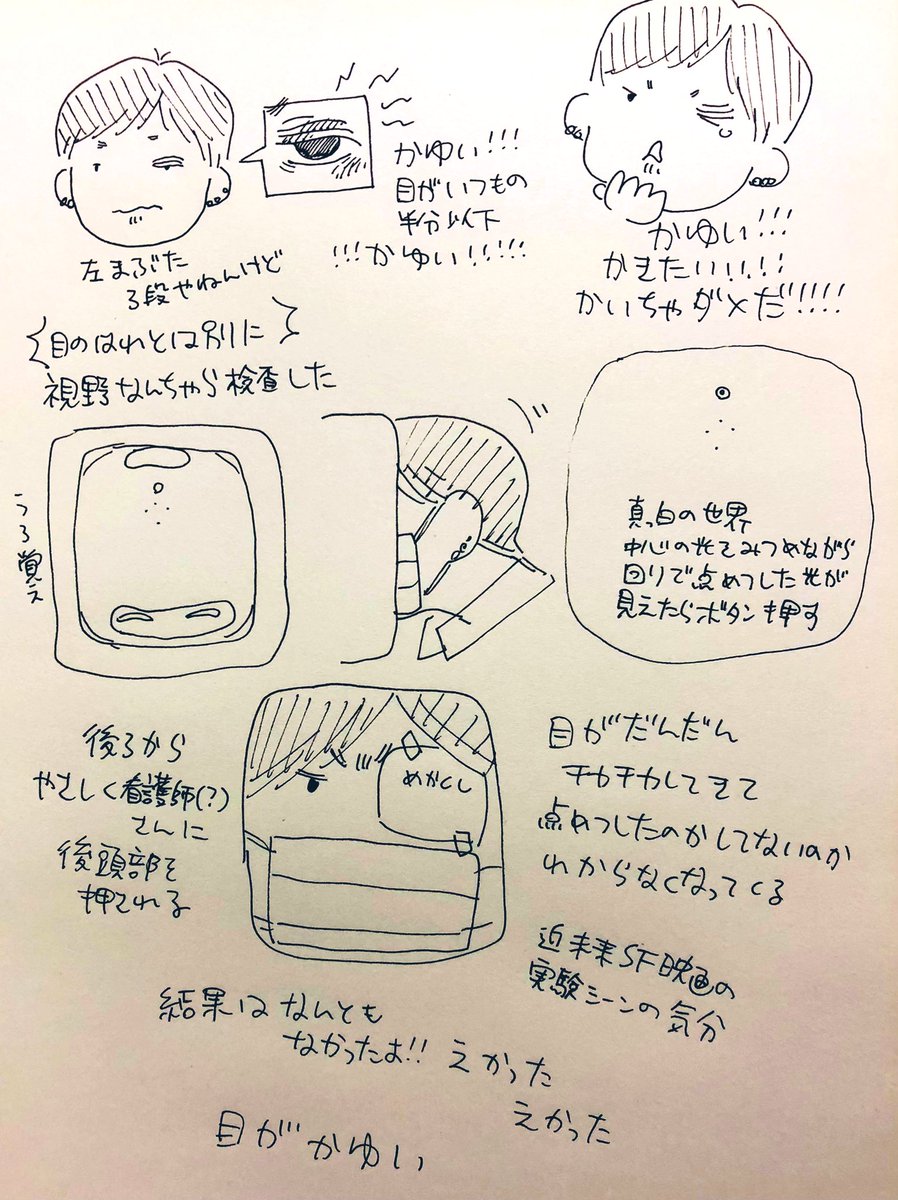 かゆい!!!
目がいつもの
半分以下
!!!かゆい!!!!!
左まぶた
3段やねんけど
かゆい!!!
かきたい!!!!!
かいちゃダメだ!!!!
目のはれとは別に
視野なんちゃら検査した
うろ覚え
真っ白の世界
中心の光をみつめながら
回りで点めつした光が
見えたらボタン押す
後ろから
やさしく看護師(?)
さんに
後頭部を
押される
めかくし
目がだんだん
チカチカしてきて
点めつしたのかしてないのか
わからなくなってくる
近未来SF映画の
実験シーンの気分
結果はなんとも
なかったよ!!
えかった
えかった
目がかゆい